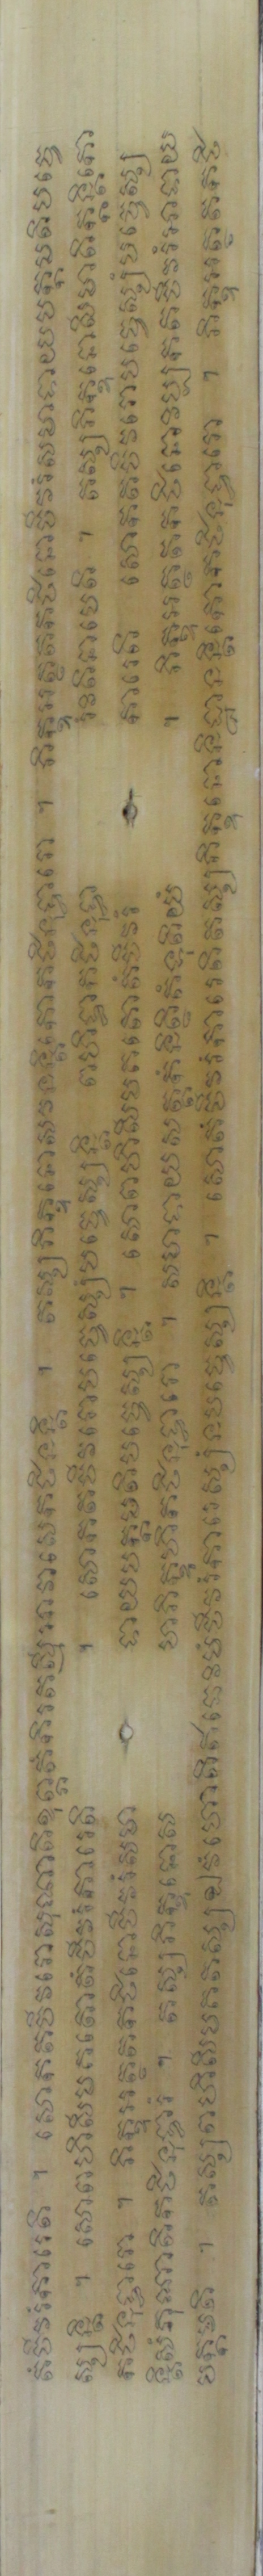 តំចីវរំការេតិ ។ សោកតចីវរោសុណាតិឧព្ភតំកិរតស្មិំអាវាសេកថិនន្តិ ។ តស្សភិក្ខុនោសវនន្តិកោកថិនុទ្ធារោ ។ ភិក្ខុអត្ថតកថិនោចីវរំសមាទាយបក្កមតិបច្ចេ
ស្សន្តិ ។ សោពហិសីមគតោតំចីវរំការេតិ ។ សោកតចីវរោបច្ចេស្សំបច្ចេស្សន្តិ ពហិទ្ធាកថិនុទ្ធា រំវីតិនាមេតិ ។ តស្សភិក្ខុនោសីមាតិក្កន្តិកោ
កថិនុទ្ធារោ ។ ភិក្ខុអត្ថតកថិនោចីវរំសមា ទាយបក្កមតិបច្ចេស្សន្តិ ។ សោពហិសីមគតោតំចីវរំ ការេតិ សោកតចីវរោបច្ចេស្សំបច្ចេស្ស
ន្តិសំភុណាតិកថិនុទ្ធារំ ។ តស្សភិក្ខុនោស ហភិក្ខុហិកថិនុទ្ធារោ ។ សមាទាយសត្តកំនិដ្ឋិតំទុតិយំ ។ ភិក្ខុអត្ថតកថិនោវិប្បកតចីវរំអាទាយ
បក្កមតិ ។ តស្សពហិសីមគតស្សឯវំហោតិឥធេវិមំចីវរំការេស្សំនបច្ចេស្សន្តិ ។ សោតំចីវរំការេតិតស្សភិក្ខុនោនិដ្ឋានន្តិកោកថិនុទ្ធារោ ។ ភិក្ខុអត្ថតកថិ